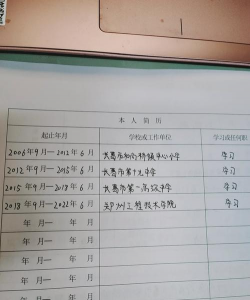 本 人 简 历
起止年月 学校或工作单位 学习或任何职
2006年9月—2012年6月 长葛市和尚桥镇中心小学 学习
2012年9月—2015年6月 长葛市第十九中学 学习
2015年9月—2018年6月 长葛市第一高级中学 学习
2018年9月—2022年6月 郑州工程技术学院 学习
年 月— 年 月
年 月— 年 月
年 月— 年 月
年 月— 年 月
年 月— 年 月